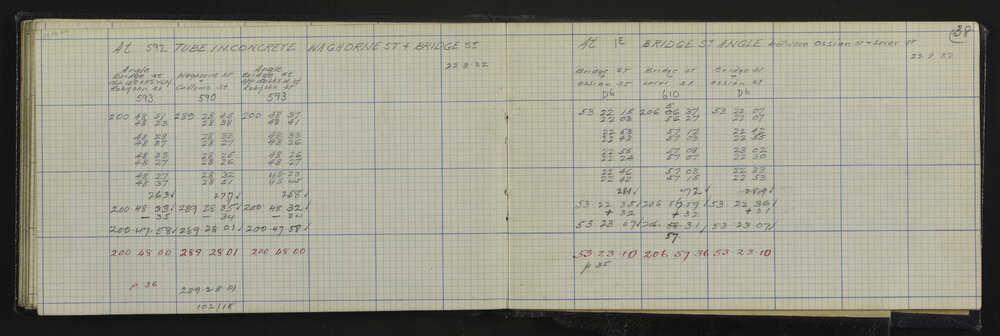 At 592 TUBE IN CONCRETE WAGHORNE ST & BRIDGE ST
22.8.32
Angle Angle
Bridge St Waghorne St Bridge St
&
Customs St
Robjohn St Robjohn St
593 590 593
200 48 51 289 28 45 200 48 37
48 23 28 38 48 41
48 28 28 33 48 33
48 37 28 27 48 26
48 33 28 25 48 26
48 27 28 26 48 27
48 27 28 32 48 23
48 37 28 51 48 45
263✓ 277✓ 258✓
200 48 33✓ 289 28 35✓ 200 48 32✓
- 35 - 34 - 34
200 47 58✓ 289 28 01✓ 200 47 58✓
200 48 00 289 28 01 200 48 00
p 36 289.28.01
102/18
38
At 1E BRIDGE ST ANGLE between Ossian St & Lever St
22.8.32
Bridge St Bridge St Bridge St
& & &
Ossian St Lever St Ossian St
D6 610 D6
53 22 15 206 56 37 53 22 07
22 03 56 27 22 07
22 53 57 12 22 42
22 43 57 03 22 53
22 55 57 08 23 02
22 24 57 07 22 30
22 46 57 03 22 33
22 42 57 15 22 53
281✓ 472✓ 289✓
53 22 35✓ 206 56 59✓ 53 22 36✓
+ 32 + 32 + 31
53 23 07✓ 206 31✓ 53 23 07✓
57
53.23.10 206.57.36 53.23.10
p 35